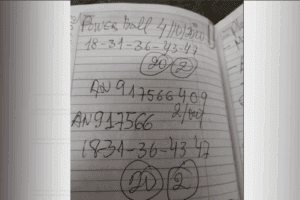 Power ball 4/10/2001
18-31-36-43-47
20 2
AN 917566 409
AN917566
18-31-36-43 47
20 2